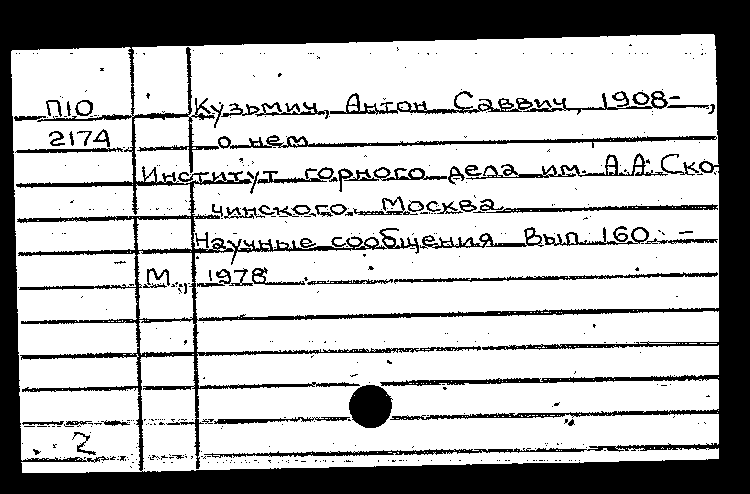 П10 Кузьмин, Антон Саввич, 1908- ,
2174 о нем
Институт горного дела им. А.А. Ско-
чинского. Москва.
Научные сообщения. Вып. 160. -
М., 1978
2